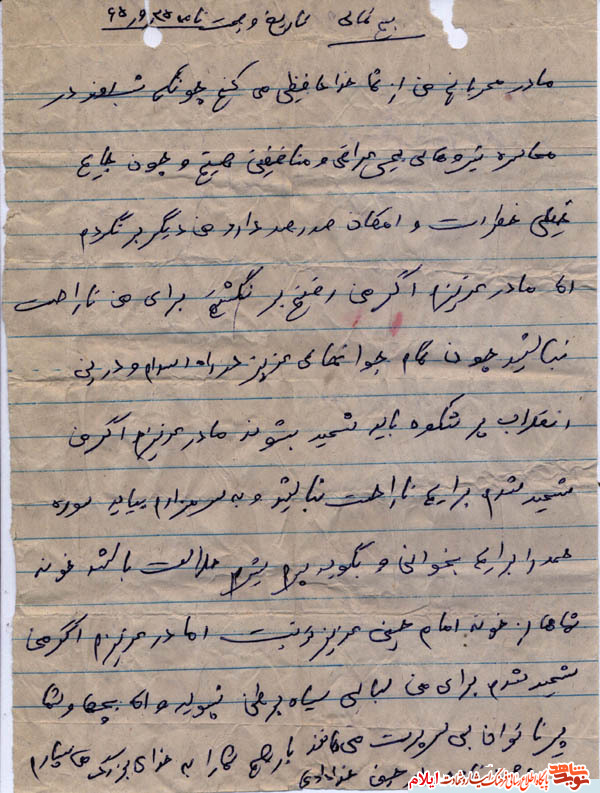 بسم تعالی تاریخ وصیت نامه
مادر مهربانم من از شما خداحافظی می کنم چونکه شب در
محاصره نیروهای بعثی عراقی و منافقین هستم و چون جایم
خیلی خطر است و امکان صد در صد دارد من دیگر برنگردم
اما مادر عزیزم اگر من رفتم بر نگشتم برای من ناراحت
نباشید چون تمام جوانهای عزیز در راه اسلام و در این
انقلاب پر شکوه باید شهید بشوند مادر عزیزم اگر من
شهید شدم برایم ناراحت نباشید و به سر مزارم بیاید سوره
حمد را برایم بخوانی و بگوید پسرم شیرم حلالت باشد خونه
شماها از خونه امام حسین عزیزتر نیست اما مادر عزیزم اگر من
شهید شدم برای من لباس سیاه بر تن نپوشید و اما بچه‌ها و شما
پدر ناتوان بی سرپرست می‌مانند باز هم شما را به خدای بزرگ می‌سپارم
خدادادی
نوید شاهد پایگاه اطلاع رسانی فرهنگ ایثار و شهادت ایلام